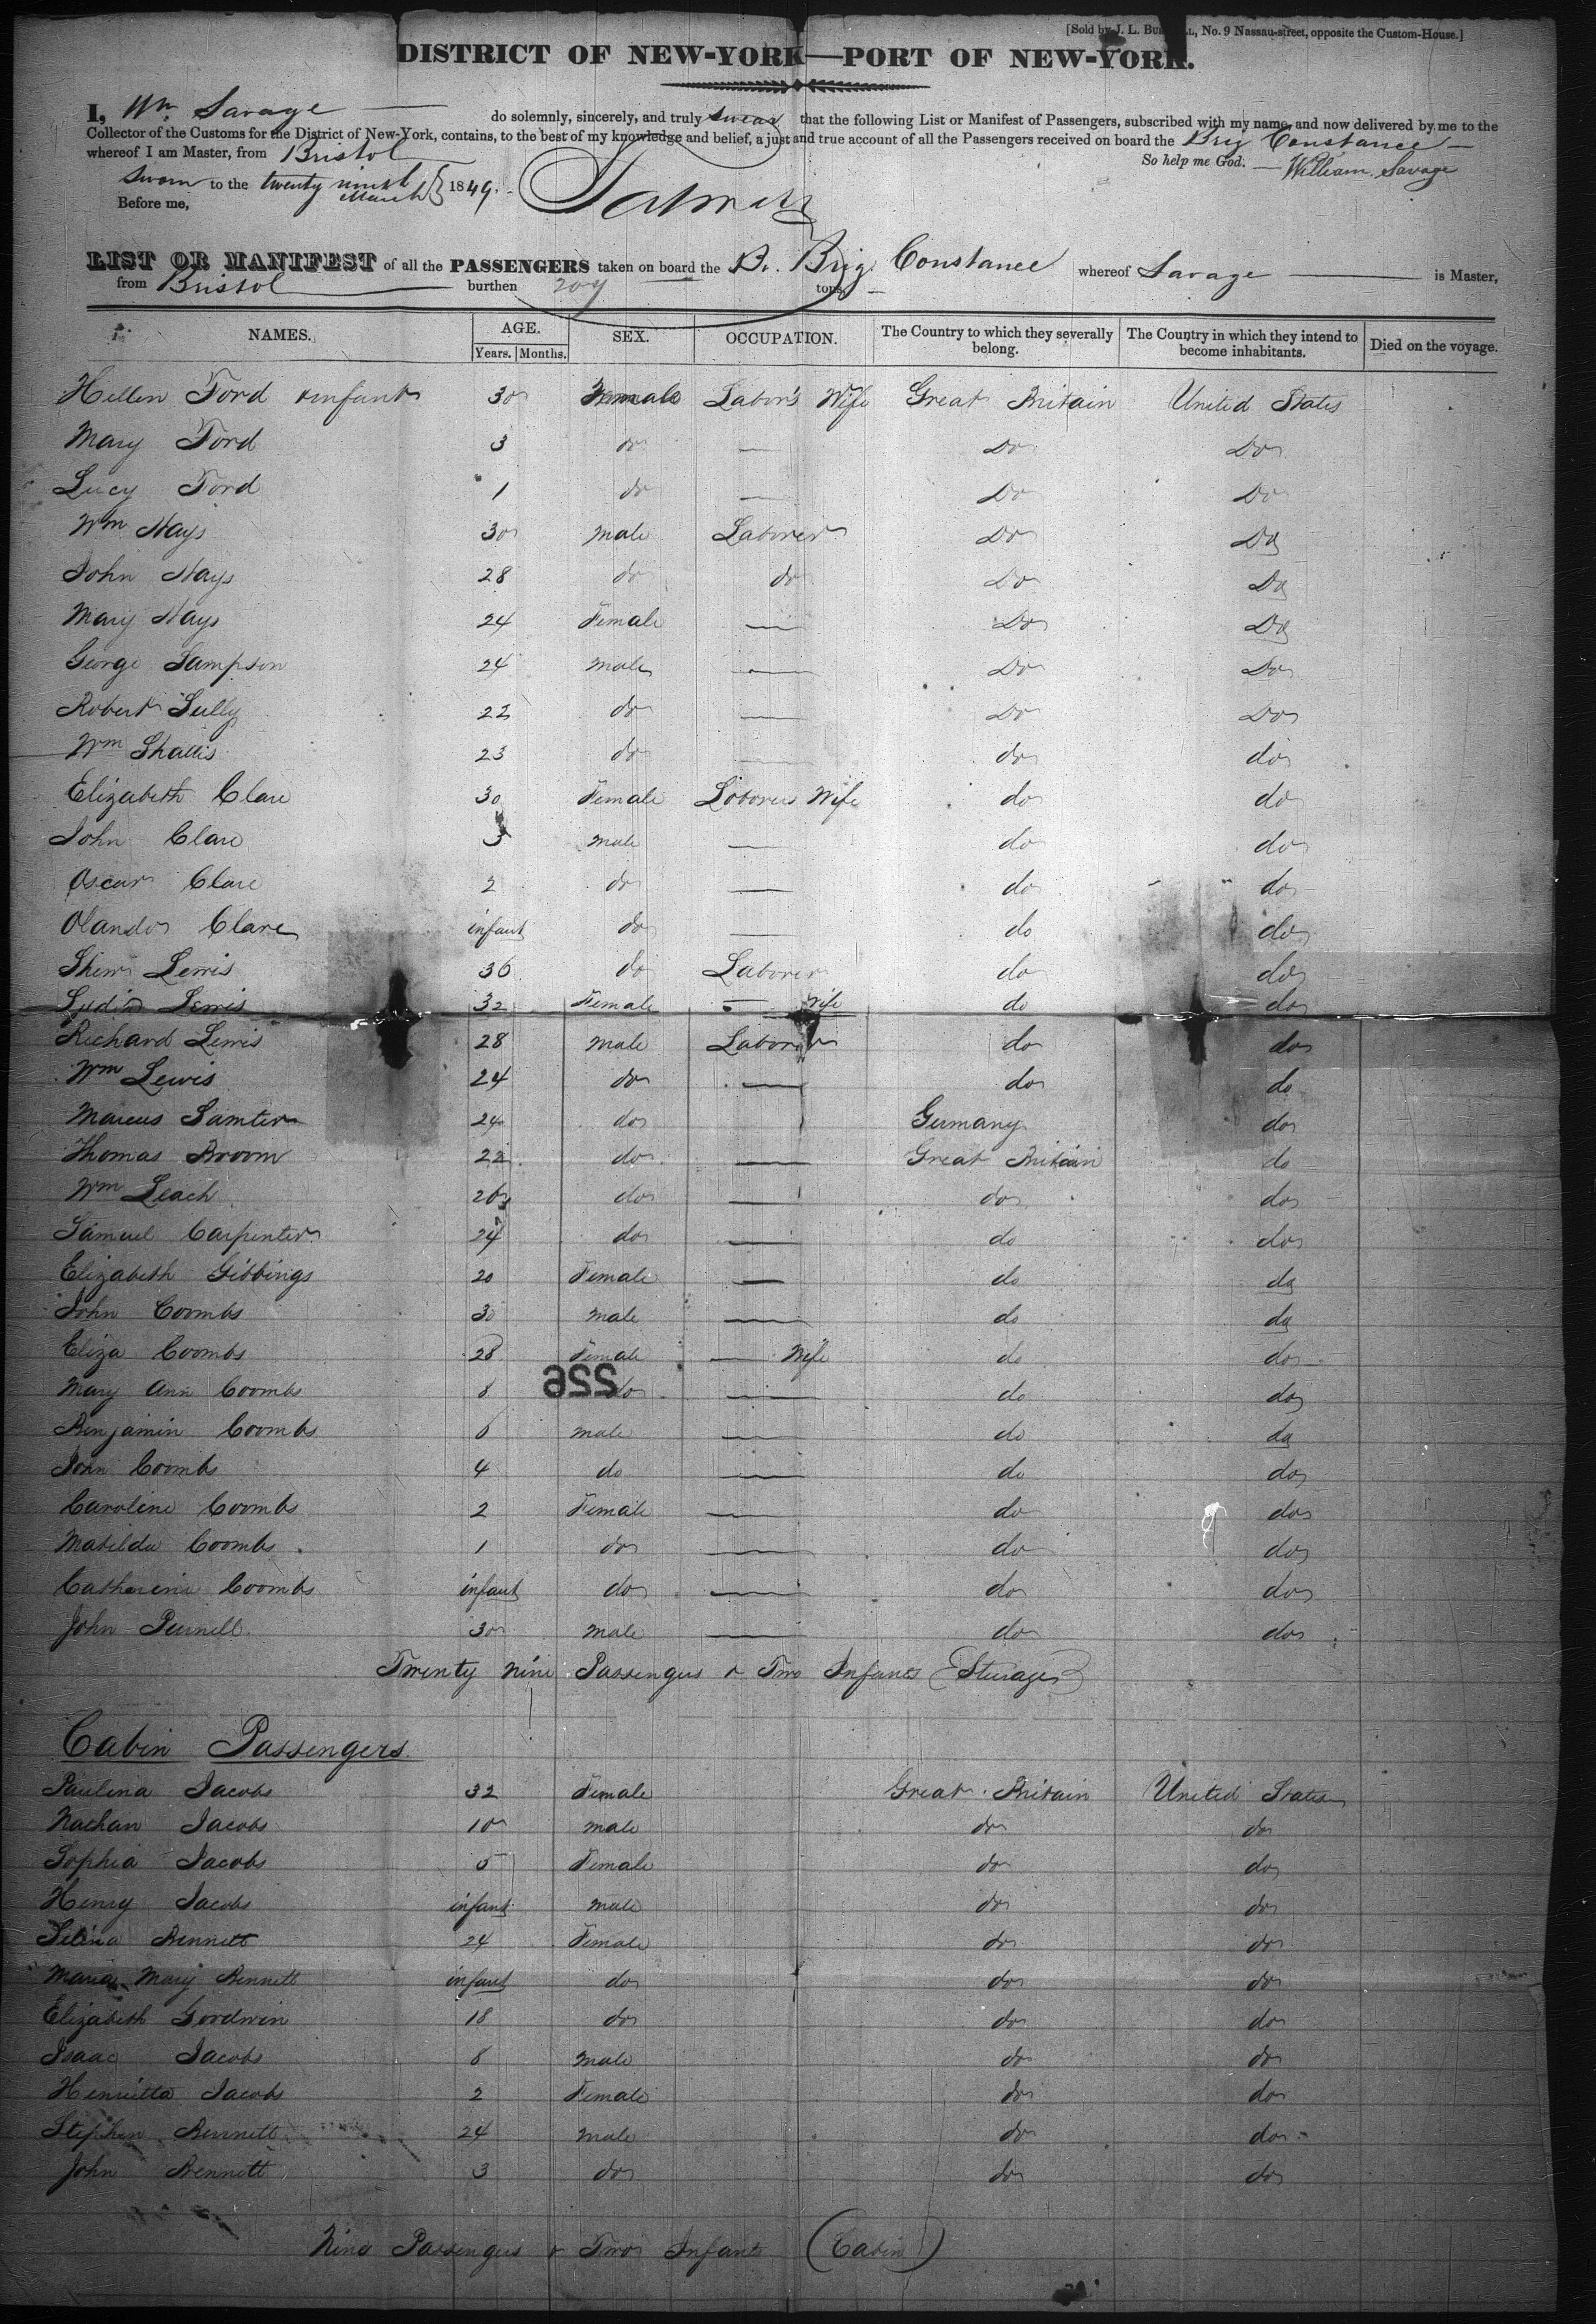 [Sold by J. L. Bu LL, No. 9 Nassau-street, opposite the Custom-House.]
DISTRICT OF NEW-YORK—PORT OF NEW-YORK.
I, Wm Savage do solemnly, sincerely, and truly swear that the following List or Manifest of Passengers, subscribed with my name, and now delivered by me to the
Collector of the Customs for the District of New-York, contains, to the best of my knowledge and belief, a just and true account of all the Passengers received on board the Brig Constance
whereof I am Master, from Bristol So help me God. William Savage
Sworn to the twenty ninth March 1849.
Before me,
LIST OR MANIFEST of all the PASSENGERS taken on board the Br. Brig Constance whereof Savage is Master,
from Bristol burthen 204 tons,
NAMES. AGE. SEX. OCCUPATION. The Country to which they severally belong. The Country in which they intend to become inhabitants. Died on the voyage.
Years. Months.
Hellen Ford & infant 30 Female Labor's Wife Great Britain United States
Mary Ford 3 do — Do Do
Lucy Ford 1 do — Do Do
Wm Hays 30 male Laborer Do Do
John Hays 28 do do Do Do
Mary Hays 24 Female — Do Do
George Sampson 24 male — Do Do
Robert Sully 22 do — Do Do
Wm Shallis 23 do — do do
Elizabeth Clare 30 Female Laborers Wife do do
John Clare 3 male — do do
Oscar Clare 2 do — do do
Olando Clare infant do — do do
Lewis 36 do Laborer do do
Lydia Lewis 32 Female — Wife do do
Richard Lewis 28 male Laborer do do
Wm Lewis 24 do — do do
Marcus Samter 24 do Germany do
Thomas Broom 22 do — Great Britain do
Wm Leach 26 do — do do
Samuel Carpenter 24 do — do do
Elizabeth Gibbings 20 Female — do do
John Coombs 30 male — do do
Eliza Coombs 28 Female — Wife do do
Mary Ann Coombs 8 do — do do
Benjamin Coombs 6 male — do do
John Coombs 4 do — do do
Caroline Coombs 2 Female — do do
Matilda Coombs 1 do — do do
Catherine Coombs infant do — do do
John Purnell 30 male — do do
Twenty nine Passengers & Two Infants (Sturage)
Cabin Passengers
Paulina Jacobs 32 Female Great Britain United States
Nathan Jacobs 10 male do do
Sophia Jacobs 5 Female do do
Henry Jacobs infant male do do
Selina Bennett 24 Female do do
Maria Mary Bennett infant do do do
Elizabeth Gordwin 18 do do do
Isaac Jacobs 8 male do do
Henrietta Jacobs 2 Female do do
Stephen Bennett 24 male do do
John Bennett 3 do do do
Nine Passengers & Two Infants (Cabin)